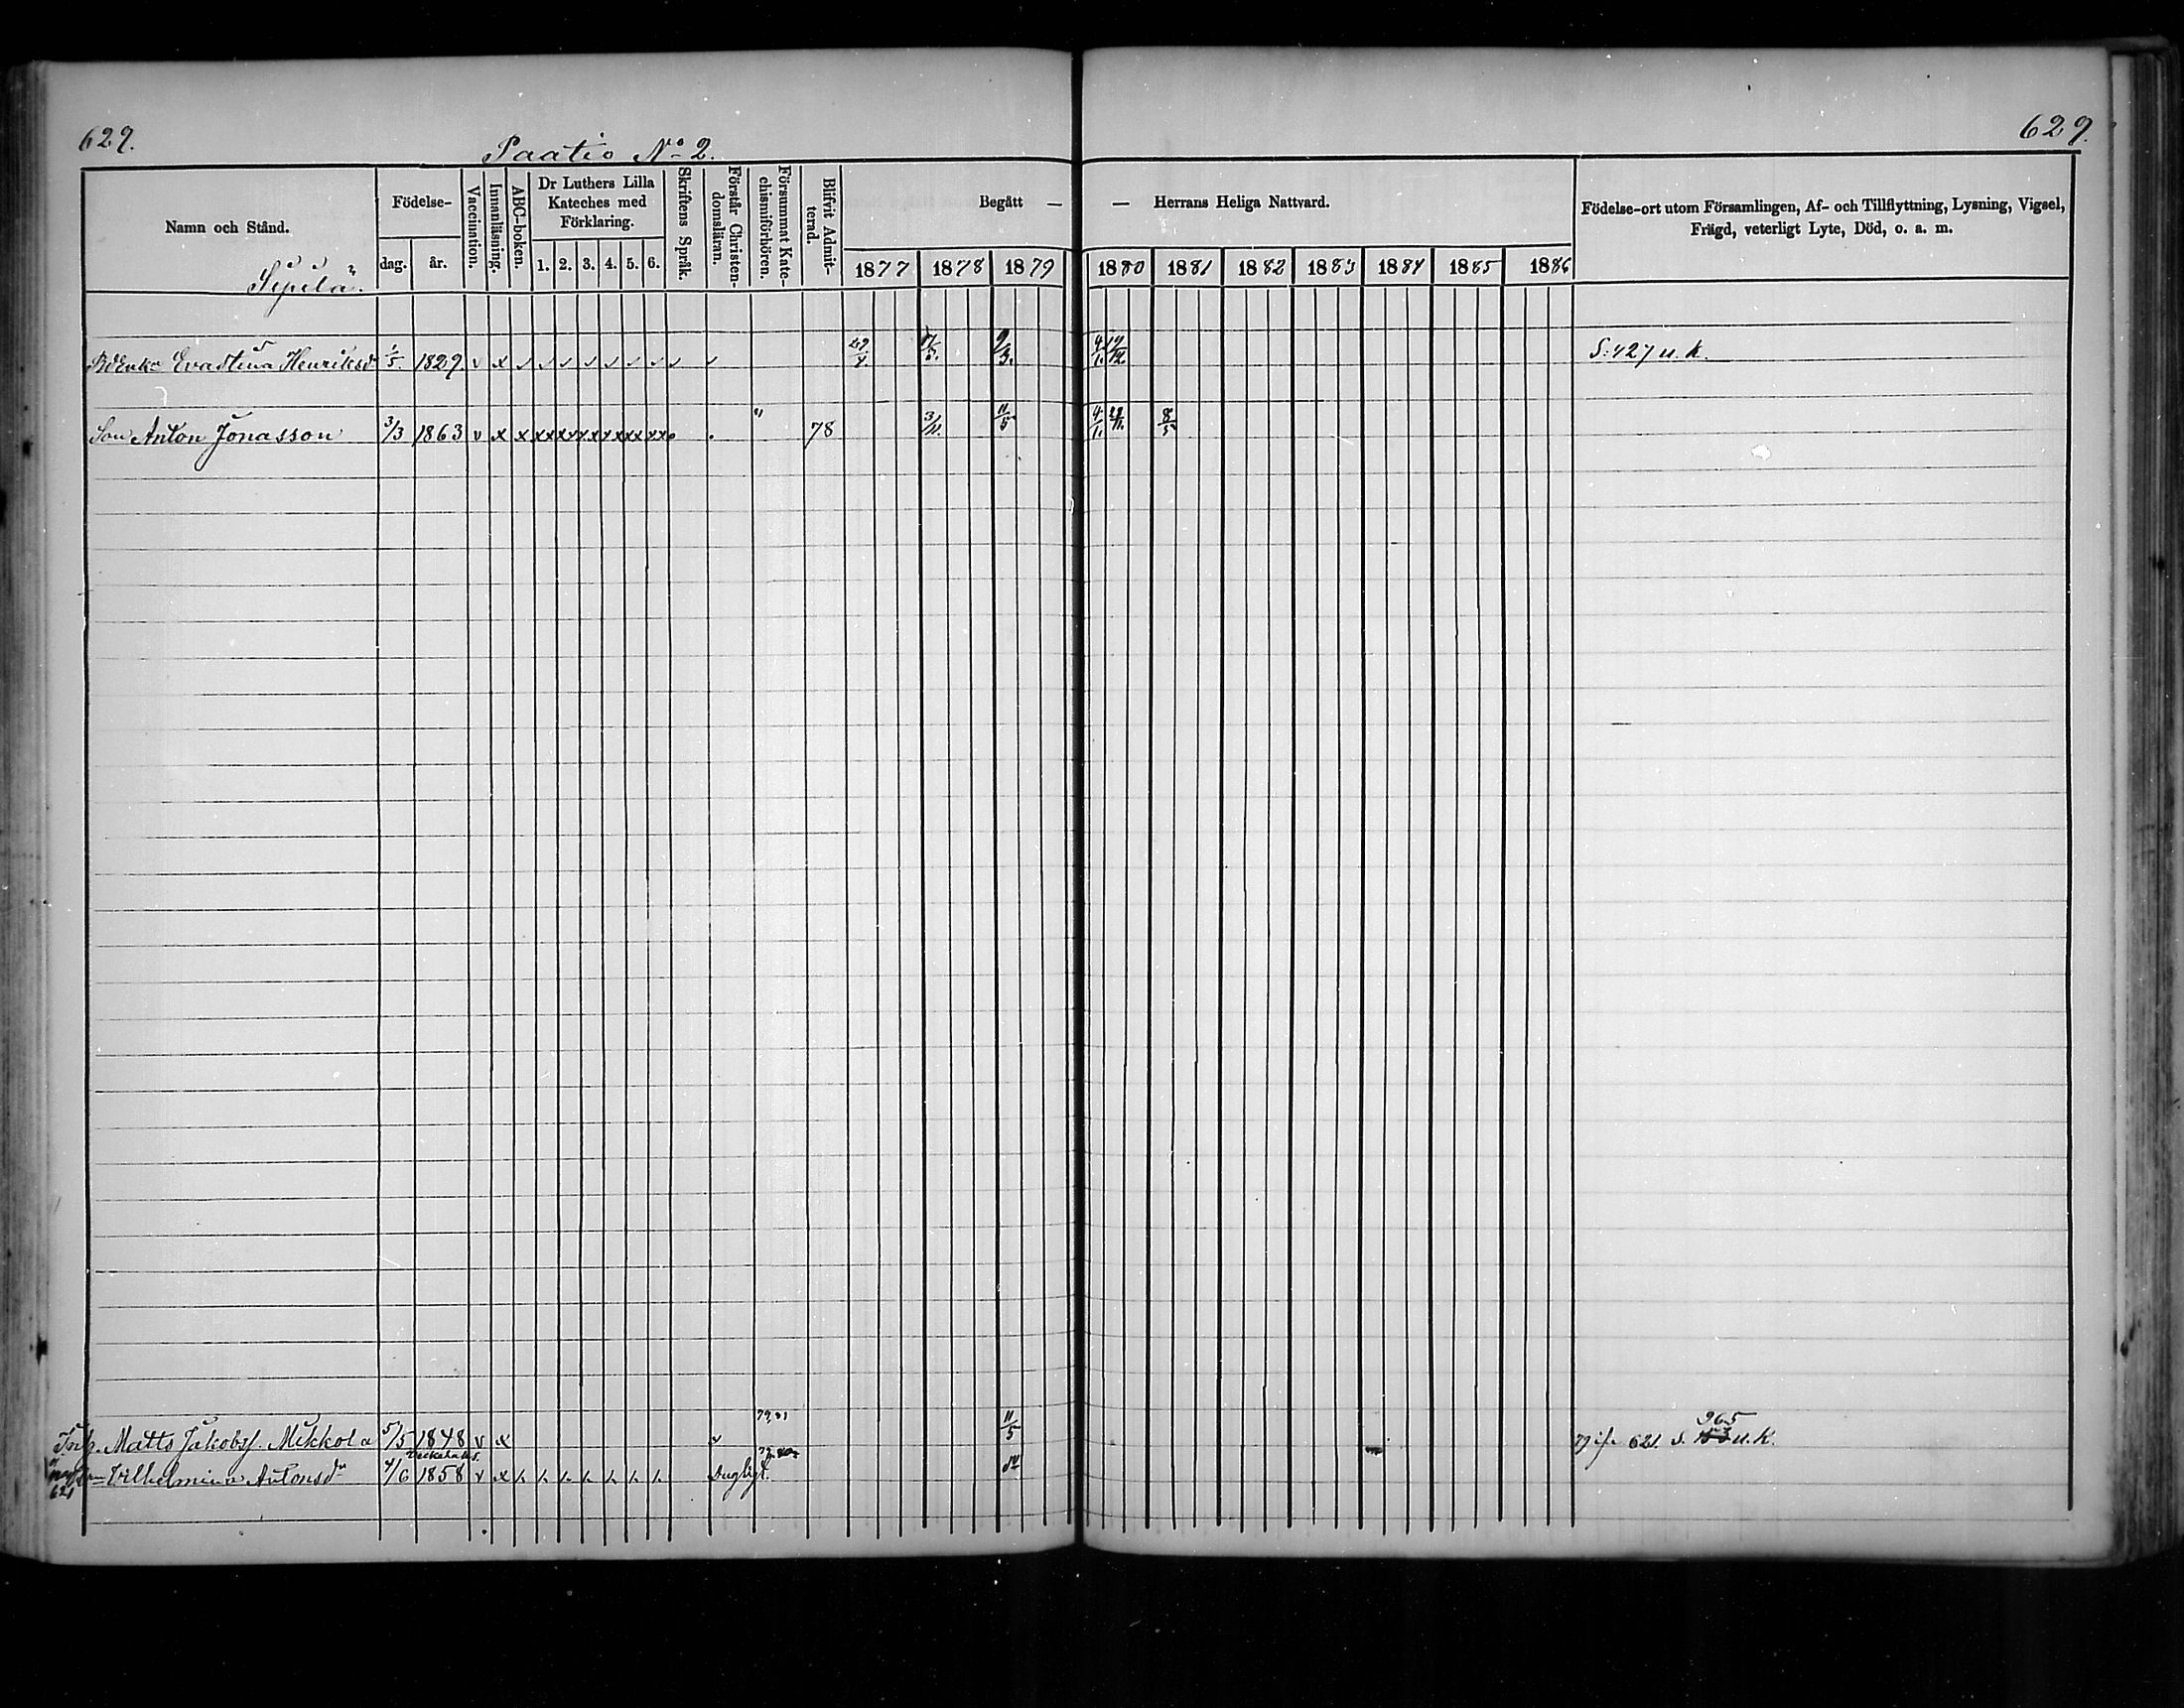 629.
629.
Paatio No 2.
Namn och Stånd.
Födelse-
dag.
år.
Vaccination.
Innanläsning.
ABC-boken.
Dr Luthers Lilla Kateches med Förklaring.
1. 2. 3. 4. 5. 6.
Skriftens Språk.
Förstår Christendomsläran.
Försummat Katechismiförhören.
Blifvit Admitterad.
Begått — — Herrans Heliga Nattvard.
1877 1878 1879 1880 1881 1882 1883 1884 1885 1886
Födelse-ort utom Församlingen, Af- och Tillflyttning, Lysning, Vigsel,
Frägd, veterligt Lyte, Död, o. a. m.
Sipilä.
Evastina Henriksdr 1/5 1829 v x 9/3. 4/1. S. 427 u. k.
Son Anton Jonasson 3/3 1863 v x x 78 3/11. 11/5 4/1. 8/5
Matts Jakobss. Mikkola 5/5 1848 v x 79, 81 11/5 621. S. 965 u. k.
Vilhelmina Antonsdr 4/6 1858 v x Dugligt.
621